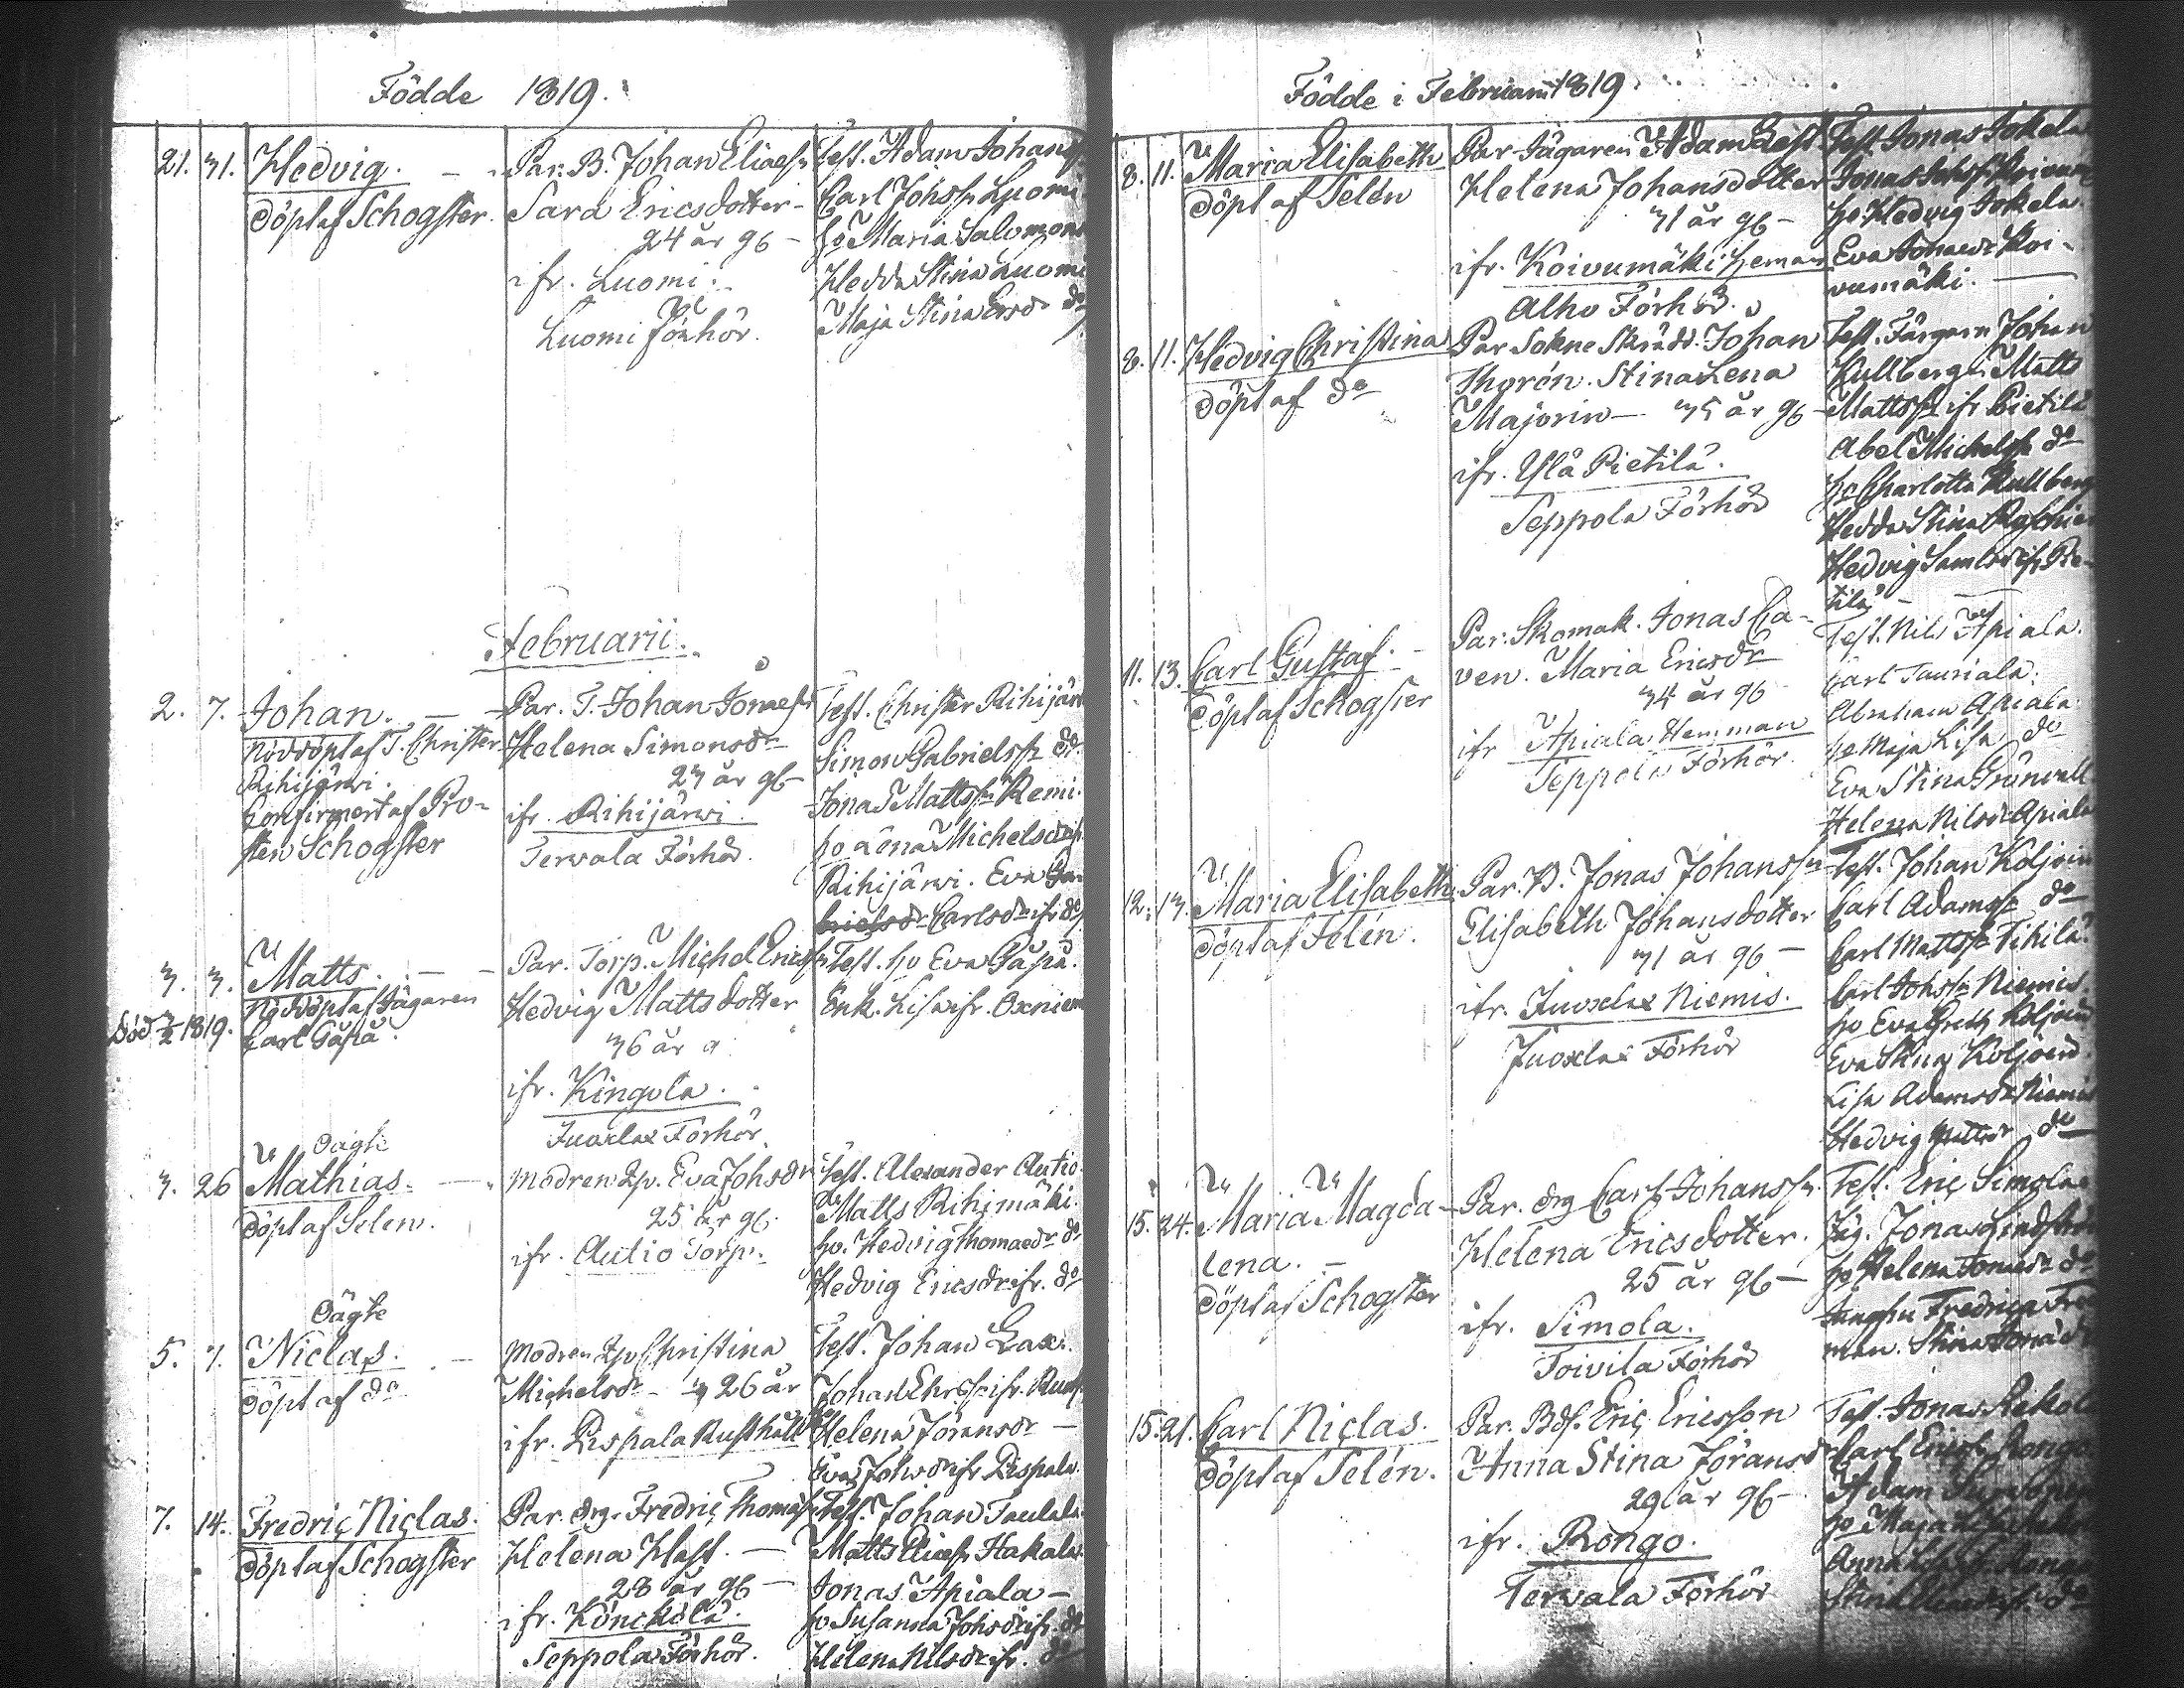 Födde 1819.
21. 31. Hedvig.
döpt af Schogster.
Par. B. Johan Eliaess
Sara Ericsdotter
24 år gb
ifr. Luomi.
Luomi förhör.
Test. Adam Johanss
Carl Johss Luomi
ho Maria Salomons
Hedda Stina Luomi
Maja Stina Ersdr do
Februarii.
2. 7. Johan.
Nöddöpt af T. Christer
Rihijärwi.
Confirmert af Pro-
sten Schogster
Par. T. Johan Jonaess
Helena Simonsdr
23 år gb
ifr. Rihijärwi.
Terwala Förhör.
Test. Christer Rihijär
Simon Gabrielss do
Jonas Mattss Remi.
ho Anna Michelsdr ifr
Rihijärwi. Eva Ga-
brielsdr Carlsdr ifr do
3. 3. Matts.
Nöddöpt af Jägaren
Carl Gåpå.
Död 3/2 1819.
Par. Torp. Michel Ericss
Hedvig Mattsdotter
36 år g
ifr. Kingola.
Juoxlax Förhör.
Test. ho Eva Gåpå.
Enk. Lisa ifr. Oxniem
Oägte
3. 26 Mathias.
döpt af Selen.
Modren Qp. Eva Johsdr
25 år gb.
ifr. Autio Torp.
Test. Alexander Autio
Matts Rihimäki.
ho. Hedvig Thomaedr do
Hedvig Ericsdr ifr. do
Oägte
5. 7. Niclas.
döpt af do
Modren Qp Christina
Michelsdr 26 år
ifr. Pispala Rusthåll
Test. Johan Lax.
Johan Ehrss ifr. Rusth
Helena Jöransdr
Eva Johsdr ifr Pispala.
7. 14. Fredric Niclas.
döpt af Schogster
Par. drg. Fredric Thomass
Helena Hast.
28 år gb
ifr. Könckölä.
Seppola Förhör.
Test. Johan Taulala
Matts Eliaess Hakala.
Jonas Apiala
ho Susanna Johsdr ifr. do
Helena Nilsdr ifr. do
Födde i Februarii 1819
8. 11. Maria Elisabeth
döpt af Selén
Par Jägaren Adam Lest
Helena Johansdotter
31 år gb
ifr. Koivumäki heman
Alho Förhör.
Test Jonas Jokela
Jonas Johss Koivum
ho Hedvig Jokela
Eva Jonaedr Koi-
vumäki.
8. 11. Hedvig Christina
döpt af do
Par Sokne Skrädd. Johan
Thorén. Stina Lena
Majorin 35 år gb
ifr. Ylä Pietilä.
Seppola Förhör
Test. Färgarn Johan
Kullberg. Matts
Mattss ifr Pietilä
Abel Michelss do
ho Charlotta Kullberg
Hedda Stina
Hedvig Samlsdr ifr Pie-
tilä
11. 13. Carl Gustaf.
döpt af Schogster
Par. Skomak. Jonas Ca-
ven. Maria Ericsdr
34 år gb
ifr Apiala Hemman
Seppola Förhör.
Test. Nils Apiala.
Carl Tauriala.
Abraham Apiala
ho Maja Lisa do
Eva Stina Grönvall
Helena Nilsdr Apiala
12. 13. Maria Elisabeth
döpt af Selén.
Par. B. Jonas Johanss
Elisabeth Johansdotter
31 år gb
ifr. Juoxlax Niemis.
Juoxlax Förhör
Test. Johan Koljoin
Carl Adamss do
Carl Mattss Tihilä.
Carl Johss Niemis.
ho Eva Greta Koljoin
Eva Stina Koljoin
Lisa Adamsdr Niemis
Hedvig Mattsdr do
15. 24. Maria Magda-
lena.
döpt af Schogster
Par. drg Carl Johanss.
Helena Ericsdotter.
25 år gb
ifr. Simola.
Toivila Förhör
Test. Eric Simola
Jäg. Jonas Lindström
ho Helena Jonaedr do
Jungfru Fredrica
man. Stina
15. 21. Carl Niclas.
döpt af Selén.
Par. Bds. Eric Ericsson
Anna Stina Jöransdr
29 år gb
ifr. Rongo.
Terwala Förhör
Test. Jonas
Carl Ericss Rongo
Adam
ho Maja
Anna